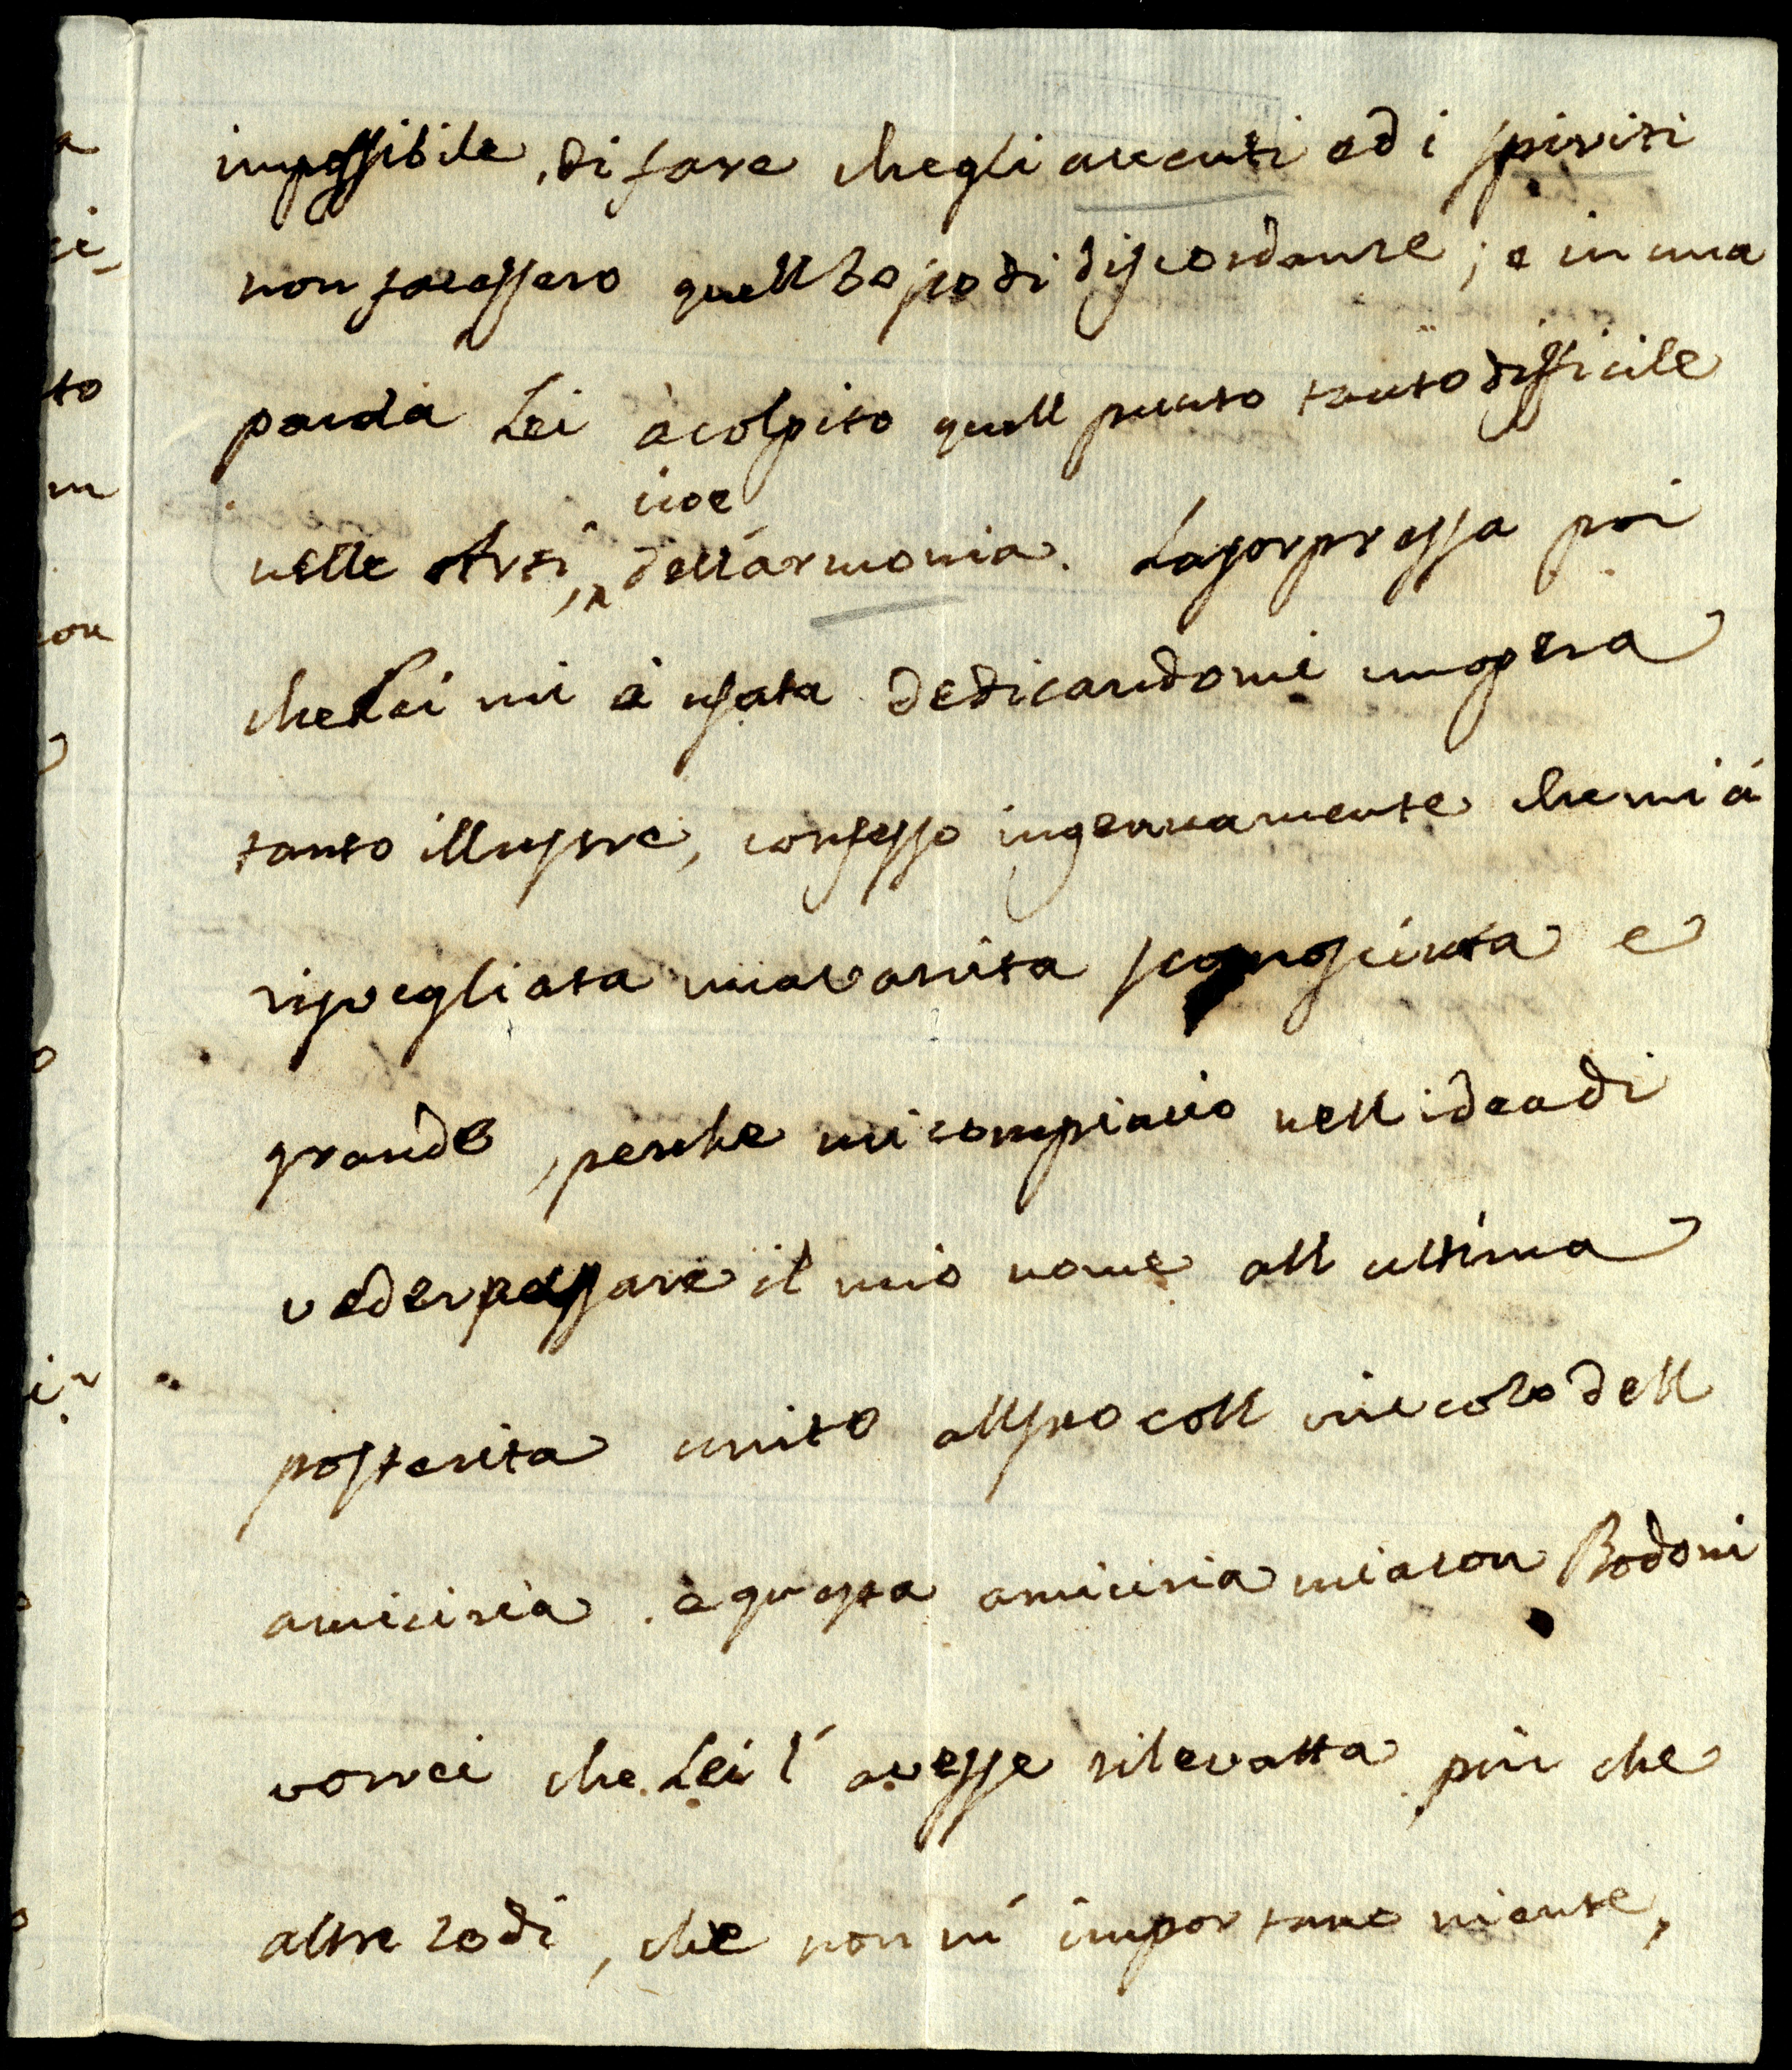 impossibile, di fare che gli accenti ed i spiriti
non facessero quell bajio di discordanze; e in una
parola Lei à colpito quell punto tanto difficile
nelle Arti, cioe dell'armonia. La sorpressa poi
che Lei mi à usata dedicandomi unopera
tanto illustre, confesso ingenuamente che mi á
risvegliata una vanita sconosciuta e
grande, perche mi compiacio nell idea di
veder passare il mio nome all ultima
posterita unito all suo coll vincolo dell
amicizia. e questa amicizia mia con Bodoni
vorrei che Lei l' avesse rilevatta piu che
altre lodi, che non m' importano niente,
a
to
in
con
o